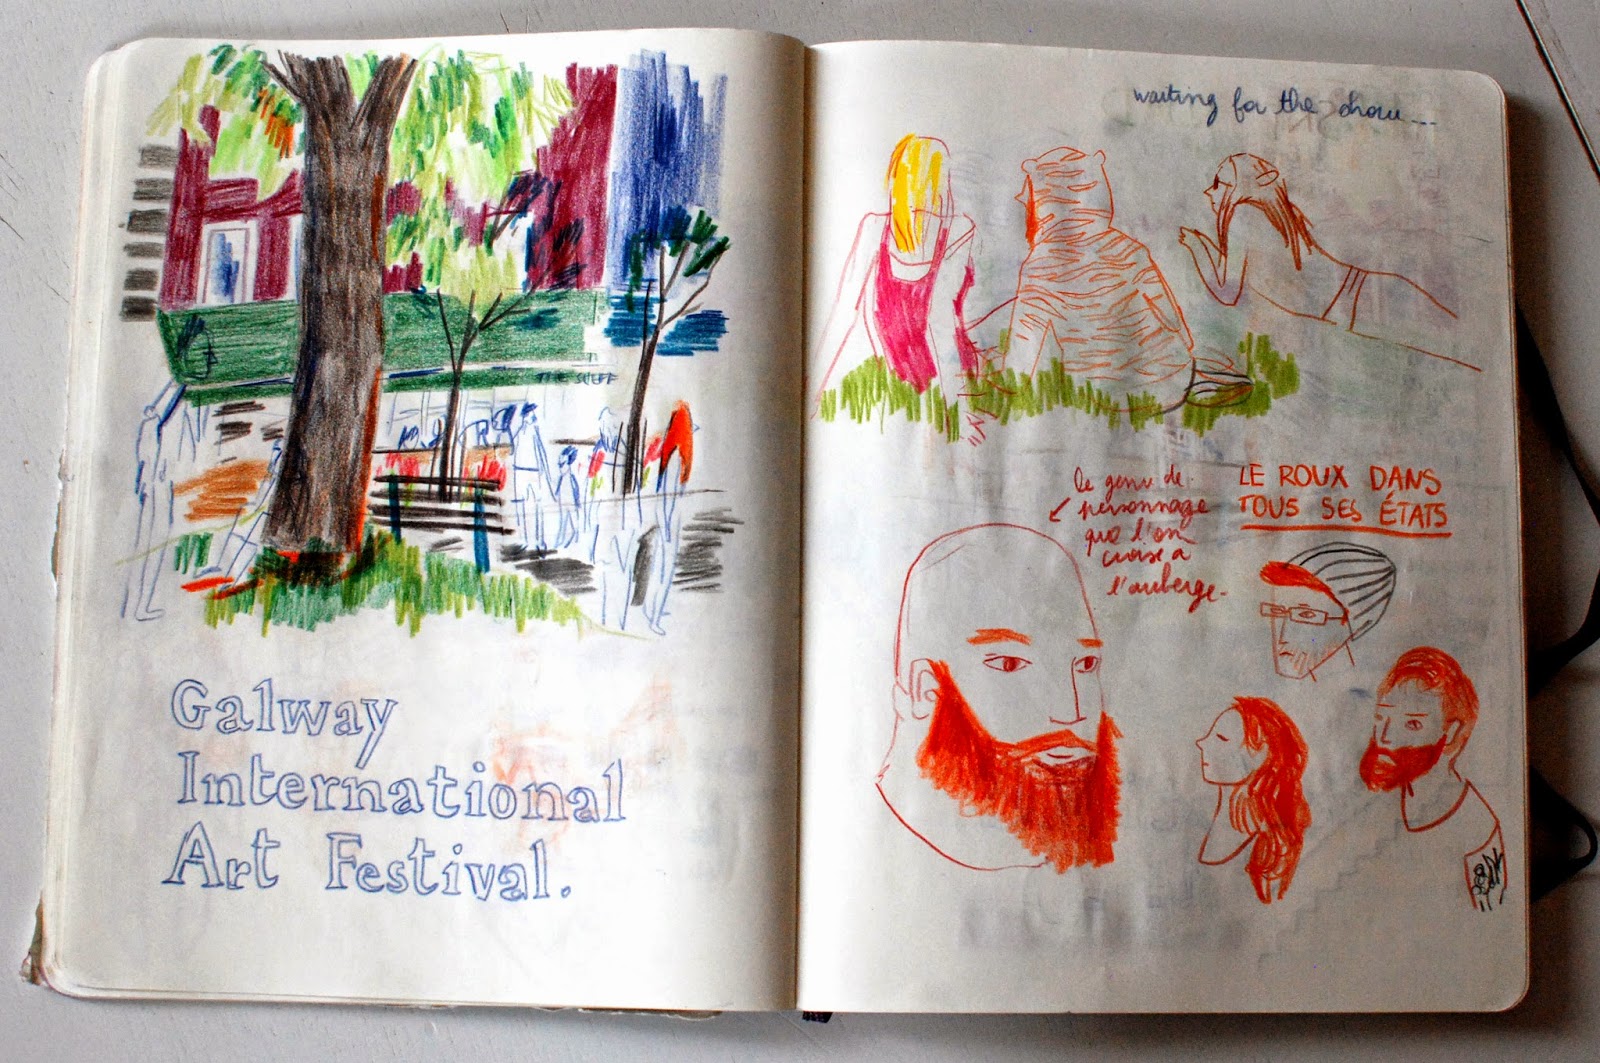 THE SCEFF
Galway
International
Art Festival.
waiting for the show...
le genre de
personnage
que l'on
croise a
l'auberge.
LE ROUX DANS
TOUS SES ÉTATS